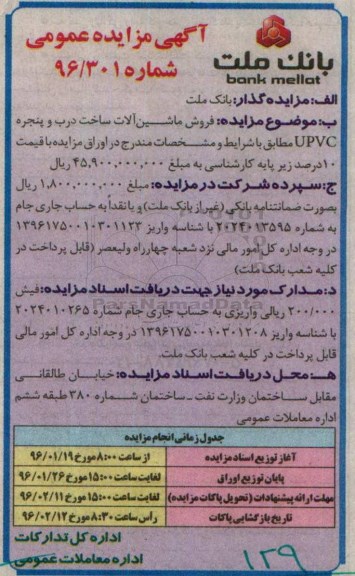 آگهی مزایده عمومی
شماره ۹۶/۳۰۱
بانک ملت
bank mellat
الف: مزایده گذار: بانک ملت
ب: موضوع مزایده: فروش ماشین آلات ساخت درب و پنجره
UPVC مطابق با شرایط و مشخصات مندرج در اوراق مزایده با قیمت
۱۰درصد زیر پایه کارشناسی به مبلغ ۴۵,۹۰۰,۰۰۰,۰۰۰ ریال
ج: سپرده شرکت در مزایده: مبلغ ۱,۸۰۰,۰۰۰,۰۰۰ ریال
بصورت ضمانتنامه بانکی (غیر از بانک ملت) و یا نقداً به حساب جاری جام
به شماره ۲۰۲۴۰۱۳۵۹۵ با شناسه واریز ۱۳۹۶۱۷۵۰۰۱۰۳۰۱۱۲۳
در وجه اداره کل امور مالی نزد شعبه چهارراه ولیعصر (قابل پرداخت در
کلیه شعب بانک ملت)
د: مدارک مورد نیاز جهت دریافت اسناد مزایده: فیش
۲۰۰/۰۰۰ ریالی واریزی به حساب جاری جام شماره ۲۰۲۴۰۱۰۲۶۵
با شناسه واریز ۱۳۹۶۱۷۵۰۰۱۰۳۰۱۲۰۸ در وجه اداره کل امور مالی
قابل پرداخت در کلیه شعب بانک ملت.
هـ: محل دریافت اسناد مزایده: خیابان طالقانی
مقابل ساختمان وزارت نفت ـ ساختمان شماره ۳۸۰ طبقه ششم
اداره معاملات عمومی
جدول زمانی انجام مزایده
آغاز توزیع اسناد مزایده از ساعت ۸:۰۰ مورخ ۹۶/۰۱/۱۹
پایان توزیع اوراق لغایت ساعت ۱۵:۰۰ مورخ ۹۶/۰۱/۲۶
مهلت ارائه پیشنهادات (تحویل پاکات مزایده) لغایت ساعت ۱۵:۰۰ مورخ ۹۶/۰۲/۱۱
تاریخ بازگشایی پاکات رأس ساعت ۸:۳۰ مورخ ۹۶/۰۲/۱۲
اداره کل تدارکات
اداره معاملات عمومی
۱۲۹
ParsNamadData